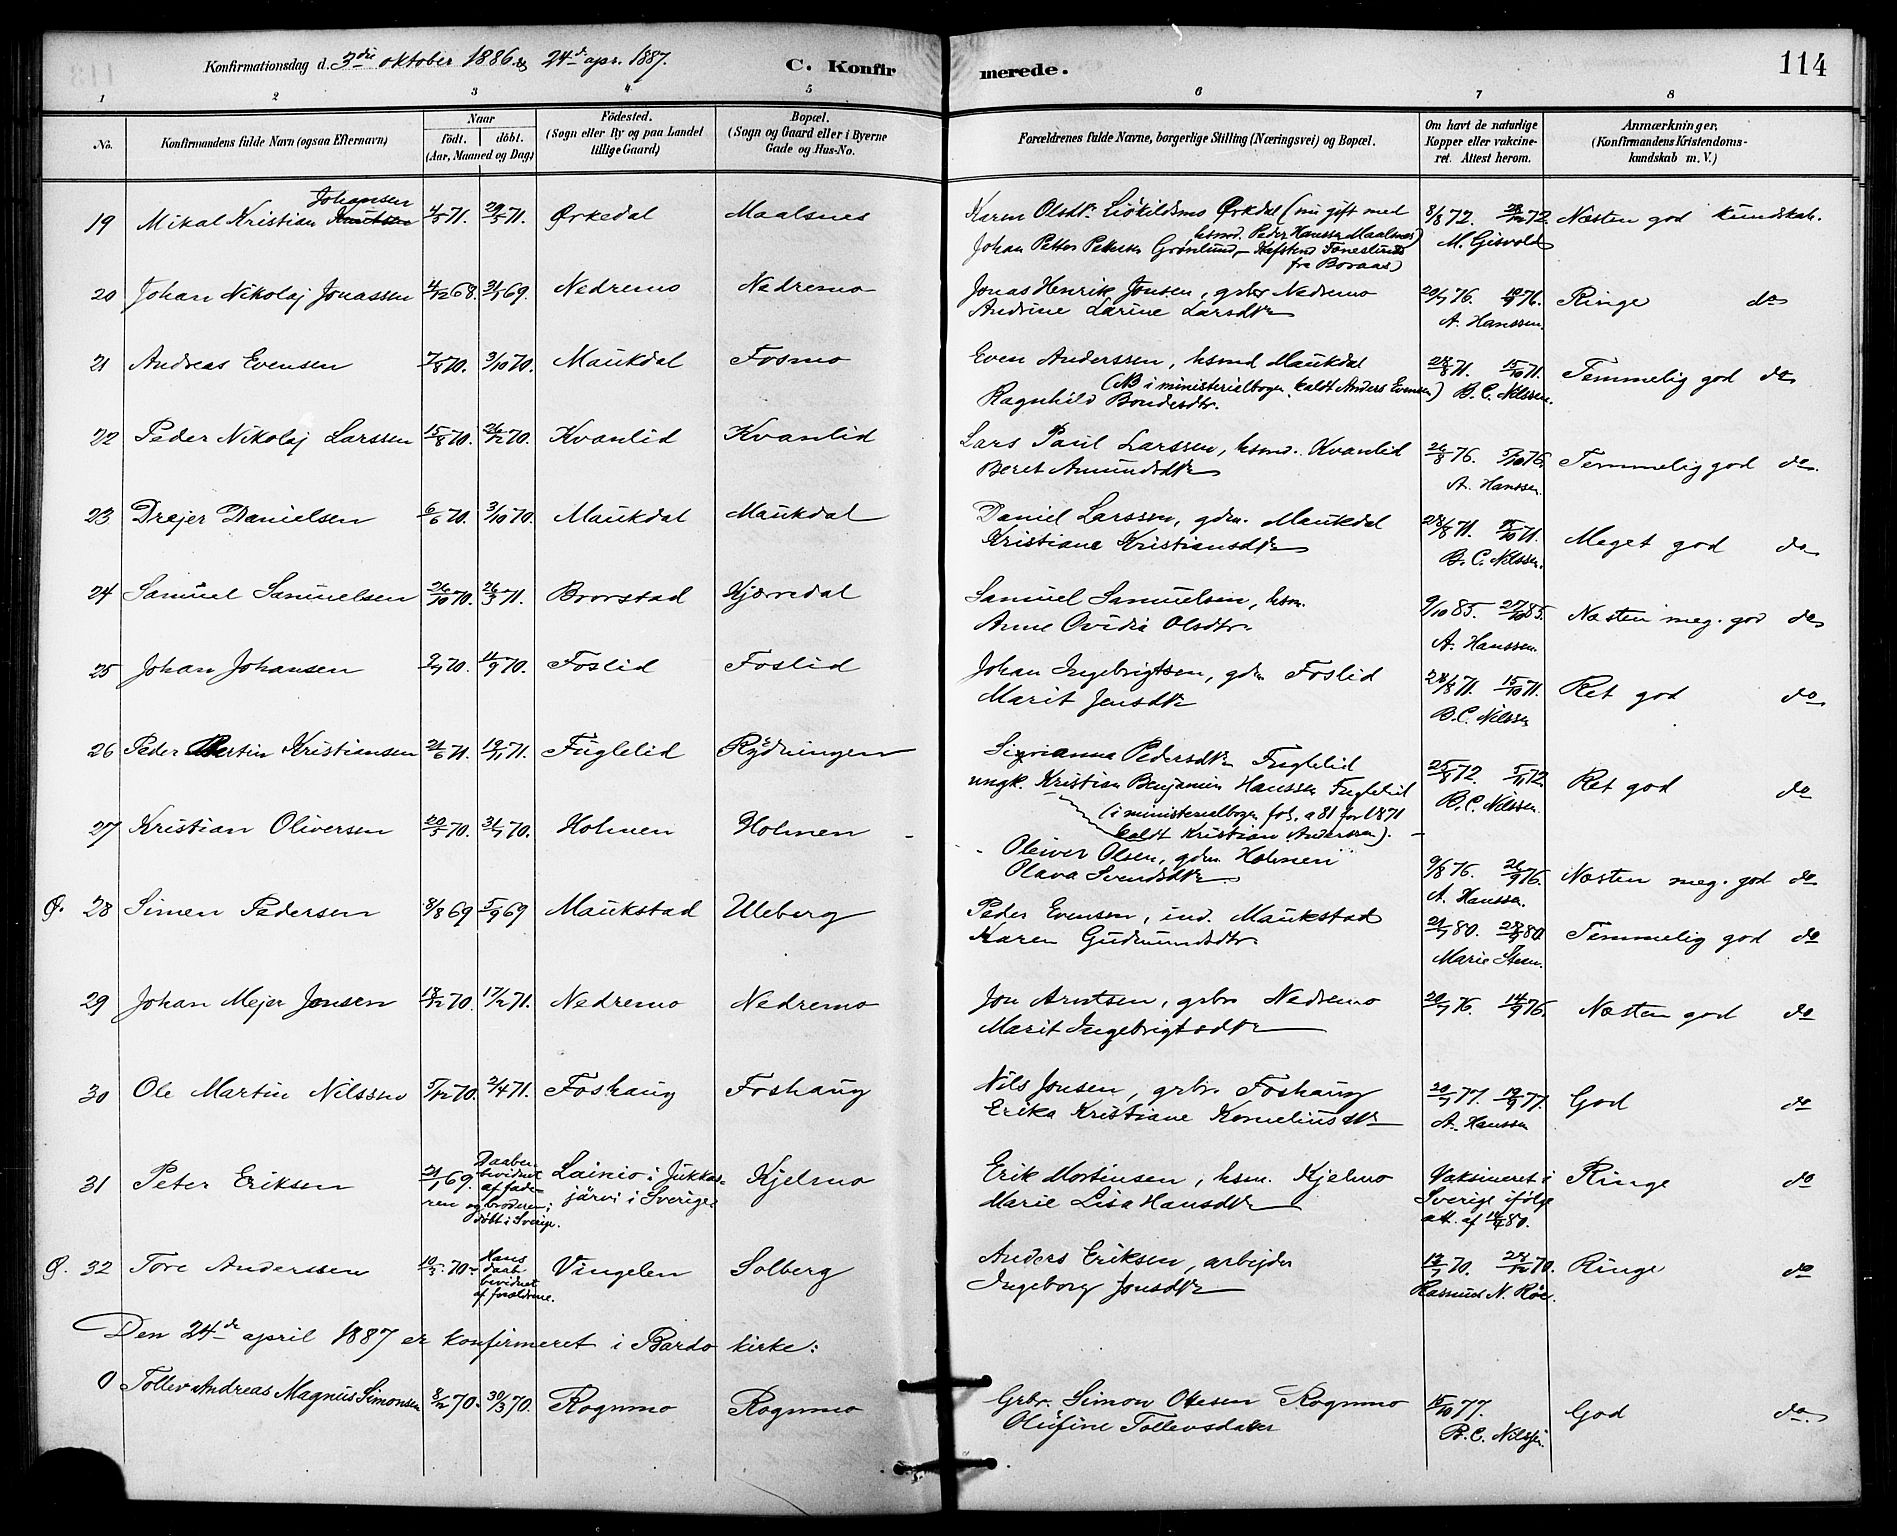 114
Konfirmationsdag d. 3die oktober 1886 og 24de apr. 1887.
C. Konfirmerede.
1 2 3 4 5 6 7 8
No.
Konfirmandens fulde Navn (ogsaa Efternavn)
Naar
født. døbt.
(Aar, Maaned og Dag)
Fødested.
(Sogn eller By og paa Landet
tillige Gaard)
Bopæl.
(Sogn og Gaard eller i Byerne
Gade og Hus-No.
Forældrenes fulde Navne, borgerlige Stilling (Næringsvei) og Bopæl.
Om havt de naturlige
Kopper eller vakcine-
ret. Attest herom.
Anmærkninger,
(Konfirmandens Kristendoms-
kundskab m. V.)
Johansen
19 Mikal Kristian Knutsen 4/3 71. 29/5 71. Ørkedal Maalsnes
Karen Olsdtr. Ørkedal (nu gift med
hsmd. Peder Hanssen Maalsnes)
Johan Petter Petersen Grønlund,
fra Boraas)
8/8 72. 72. Næsten god kundskab.
M. Gisvold
20 Johan Nikolaj Jonassen 4/12 68. 31/1 69. Nedremo Nedremo
Jonas Henrik Jonsen, grbr Nedremo
Andrine Larine Larsdtr
20/7 76. 19/9 76. Ringe do
A. Hanssen.
21 Andreas Evensen 7/8 70. 3/10 70. Maukdal Fosmo
Even Anderssen, hsmd Maukdal
(NB i ministerialbogen kaldt Anders Evensen)
Ragnhild Bondesdtr.
28/8 71. 15/10 71. Temmelig god do
B. C. Nilssen.
22 Peder Nikolaj Larssen 15/8 70. 26/12 70. Kvanlid Kvanlid
Lars Paul Larssen, hsmd. Kvanlid
Beret Amundsdtr
26/8 76. 5/10 76. Temmelig god do.
A. Hanssen.
23 Drejer Danielsen 6/6 70. 3/10 70. Maukdal Maukdal
Daniel Larssen, gdm. Maukdal
Kristiane Kristiansdtr
28/8 71. 15/10 71. Meget god do
B. C. Nilssen.
24 Samuel Samuelsen 26/10 70. 26/3 71. Brorstad Kjærredal
Samuel Samuelsen, hsm.
Anne Ovidia Olsdtr.
9/10 85. 27/10 85. Næsten meg. god do
A. Hanssen.
25 Johan Johansen 9/7 70. 11/9 70. Foslid Foslid
Johan Ingebrigtsen, gdm Foslid
Marit Jensdtr
28/8 71. 15/10 71. Ret god do
B.C. Nilssen
26 Peder Bertin Kristiansen 21/6 71. 19/11 71. Fuglelid Rydningen
Sigrianna Pedersdtr Fuglelid
ungk. Kristian Benjamin Hanssen Fuglelid
(i ministerialbogen fol. a 81 for 1871
kaldt Kristian Anderssen).
25/8 72. 5/11 72. Ret god do
B.C. Nilssen.
27 Kristian Oliversen 20/5 70. 31/7 70. Holmen Holmen
Oleiver Olsen, gdm. Holmen
Olava Svendsdtr.
9/8 76. 26/9 76. Næsten meg. god do
A. Hanssen.
Ø. 28 Simen Pedersen 8/8 69 5/9 69 Maukstad Uleberg
Peder Evensen, ind. Maukstad
Karen Gudmundsdtr.
21/7 80. 28/9 80. Temmelig god do
Marie Steen.
29 Johan Mejer Jonsen 18/12 70. 17/2 71. Nedremo Nedremo
Jon Arntsen, grbr Nedremo
Marit Ingebrigtsdtr
20/7 76. 14/9 76. Næsten god do
30 Ole Martin Nilssen 5/12 70. 2/4 71. Foshaug Foshaug
Nils Jonsen, grbr. Foshaug
Erika Kristiane Korneliusdtr
20/7 77. 19/9 77. God do
A. Hanssen
31 Peter Eriksen 21/1 69. Daaben
bevidnet
af fade-
ren og broderen;
døbt i Sverige.
Lainio i Jukkas-
järvi i Sverige
Kjelmo
Erik Mortinsen, hsm. Kjelmo
Marie Lisa Hansdtr
Vaksineret i
Sverige ifølge
att. af 14/7 80.
Ringe do
Ø. 32 Tore Anderssen 10/3 70. Hans
daab
bevidnet
af forældrene.
Vingelen Solberg
Anders Eriksen, arbejder
Ingeborg Jonsdtr
70. 70. Ringe do
Rasmus N. Røe.
Den 24de april 1887 er konfirmeret i Bardo kirke:
0 Tollev Andreas Magnus Simonsen 8/2 70. 30/3 70. Rognmo Rognmo
Grbr. Simon Olesen Rognmo
Olufine Tollevsdatter
15/10 77. God do.
B. C. Nilssen.